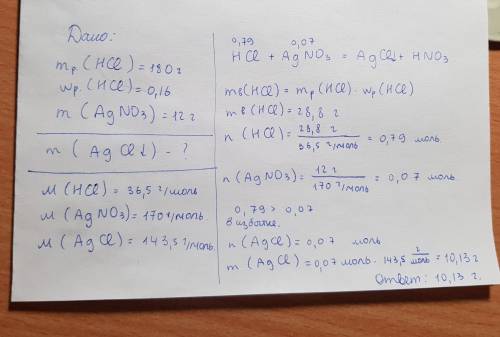 Дано:
mр (HCl) = 180 г
wр. (HCl) = 0,16
m (AgNO3) = 12 г
m (AgCl↓) - ?
M (HCl) = 36,5 г/моль
M (AgNO3) = 170 г/моль.
M (AgCl) = 143,5 г/моль.
0,79 0,07
HCl + AgNO3 = AgCl↓ + HNO3
mв(HCl) = mр(HCl) · wр(HCl)
mв(HCl) = 28,8 г
n (HCl) = 28,8 г / 36,5 г/моль = 0,79 моль.
n (AgNO3) = 12 г / 170 г/моль = 0,07 моль.
0,79 > 0,07
в избытке.
n (AgCl) = 0,07 моль
m (AgCl) = 0,07 моль · 143,5 г/моль = 10,13 г
Ответ: 10,13 г.